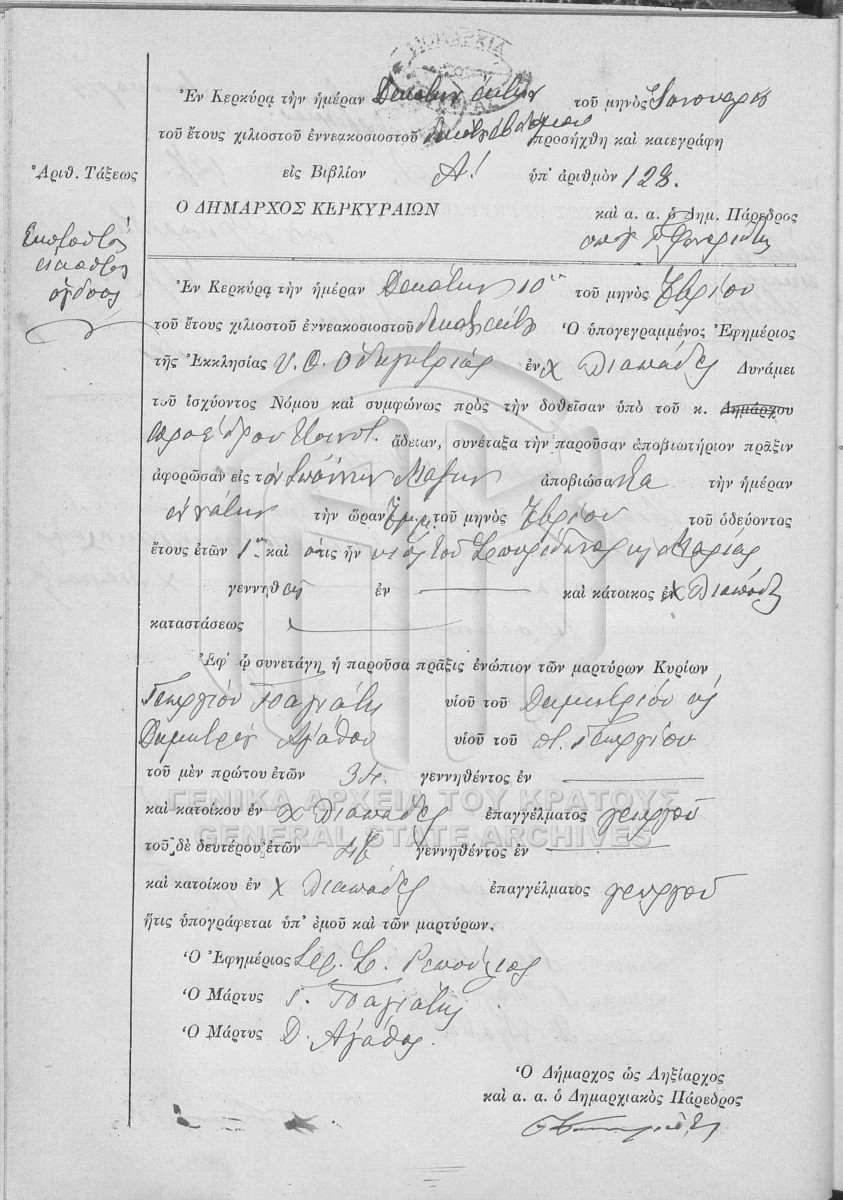 ΔΗΜΑΡΧΙΑ
Ἐν Κερκύρᾳ τὴν ἡμέραν Δεκάτην ἕκτην τοῦ μηνὸς Ἰανουαρίου
τοῦ ἔτους χιλιοστοῦ ἐννεακοσιοστοῦ προσήχθη καὶ κατεγράφη
Ἀριθ. Τάξεως
εἰς Βιβλίον Α! ὑπ' ἀριθμὸν 128.
Ο ΔΗΜΑΡΧΟΣ ΚΕΡΚΥΡΑΙΩΝ καὶ α. α. ὁ Δημ. Πάρεδρος
Ἑκατοστὸς
εἰκοστὸς
ὄγδοος
Ἐν Κερκύρᾳ τὴν ἡμέραν Δεκάτην 10ην τοῦ μηνὸς Ἰβρίου
τοῦ ἔτους χιλιοστοῦ ἐννεακοσιοστοῦ Ὁ ὑπογεγραμμένος Ἐφημέριος
τῆς Ἐκκλησίας Υ. Θ. Ὁδηγητρίας ἐν χ Λιαπάδες Δυνάμει
τοῦ ἰσχύοντος Νόμου καὶ συμφώνως πρὸς τὴν δοθεῖσαν ὑπὸ τοῦ κ. Δημάρχου
προέδρου Κοινότ. ἄδειαν, συνέταξα τὴν παροῦσαν ἀποβιωτήριον πρᾶξιν
ἀφορῶσαν εἰς τὸν Ἰωάννην ἀποβιώσαντα τὴν ἡμέραν
ἐννάτην τὴν ὥραν τοῦ μηνὸς τοῦ ὁδεύοντος
ἔτους ἐτῶν 1 καὶ ὅστις ἦν υἱὸς τοῦ Σπυρίδωνος κ Μαρίας
γεννηθεὶς ἐν καὶ κάτοικος ἐν χ Λιαπάδες
καταστάσεως
Ἐφ' ᾧ συνετάγη ἡ παροῦσα πρᾶξις ἐνώπιον τῶν μαρτύρων Κυρίων
Γεωργίου Τσαγιάτη υἱοῦ τοῦ Δημητρίου κ
Δημητρίου Ἀγάθου υἱοῦ τοῦ π. Γεωργίου
τοῦ μὲν πρώτου ἐτῶν 34. γεννηθέντος ἐν
ΓΕΝΙΚΑ ΑΡΧΕΙΑ ΤΟΥ ΚΡΑΤΟΥΣ
καὶ κατοίκου ἐν χ Λιαπάδες ἐπαγγέλματος γεωργοῦ
GENERAL STATE ARCHIVES
τοῦ δὲ δευτέρου ἐτῶν γεννηθέντος ἐν
καὶ κατοίκου ἐν χ Λιαπάδες ἐπαγγέλματος γεωργοῦ
ἥτις ὑπογράφεται ὑπ' ἐμοῦ καὶ τῶν μαρτύρων.
Ὁ Ἐφημέριος Ἱερ. Σ.
Ὁ Μάρτυς Γ. Τσαγιάτης
Ὁ Μάρτυς Δ. Ἀγάθος
Ὁ Δήμαρχος ὡς Ληξίαρχος
καὶ α. α. ὁ Δημαρχιακὸς Πάρεδρος